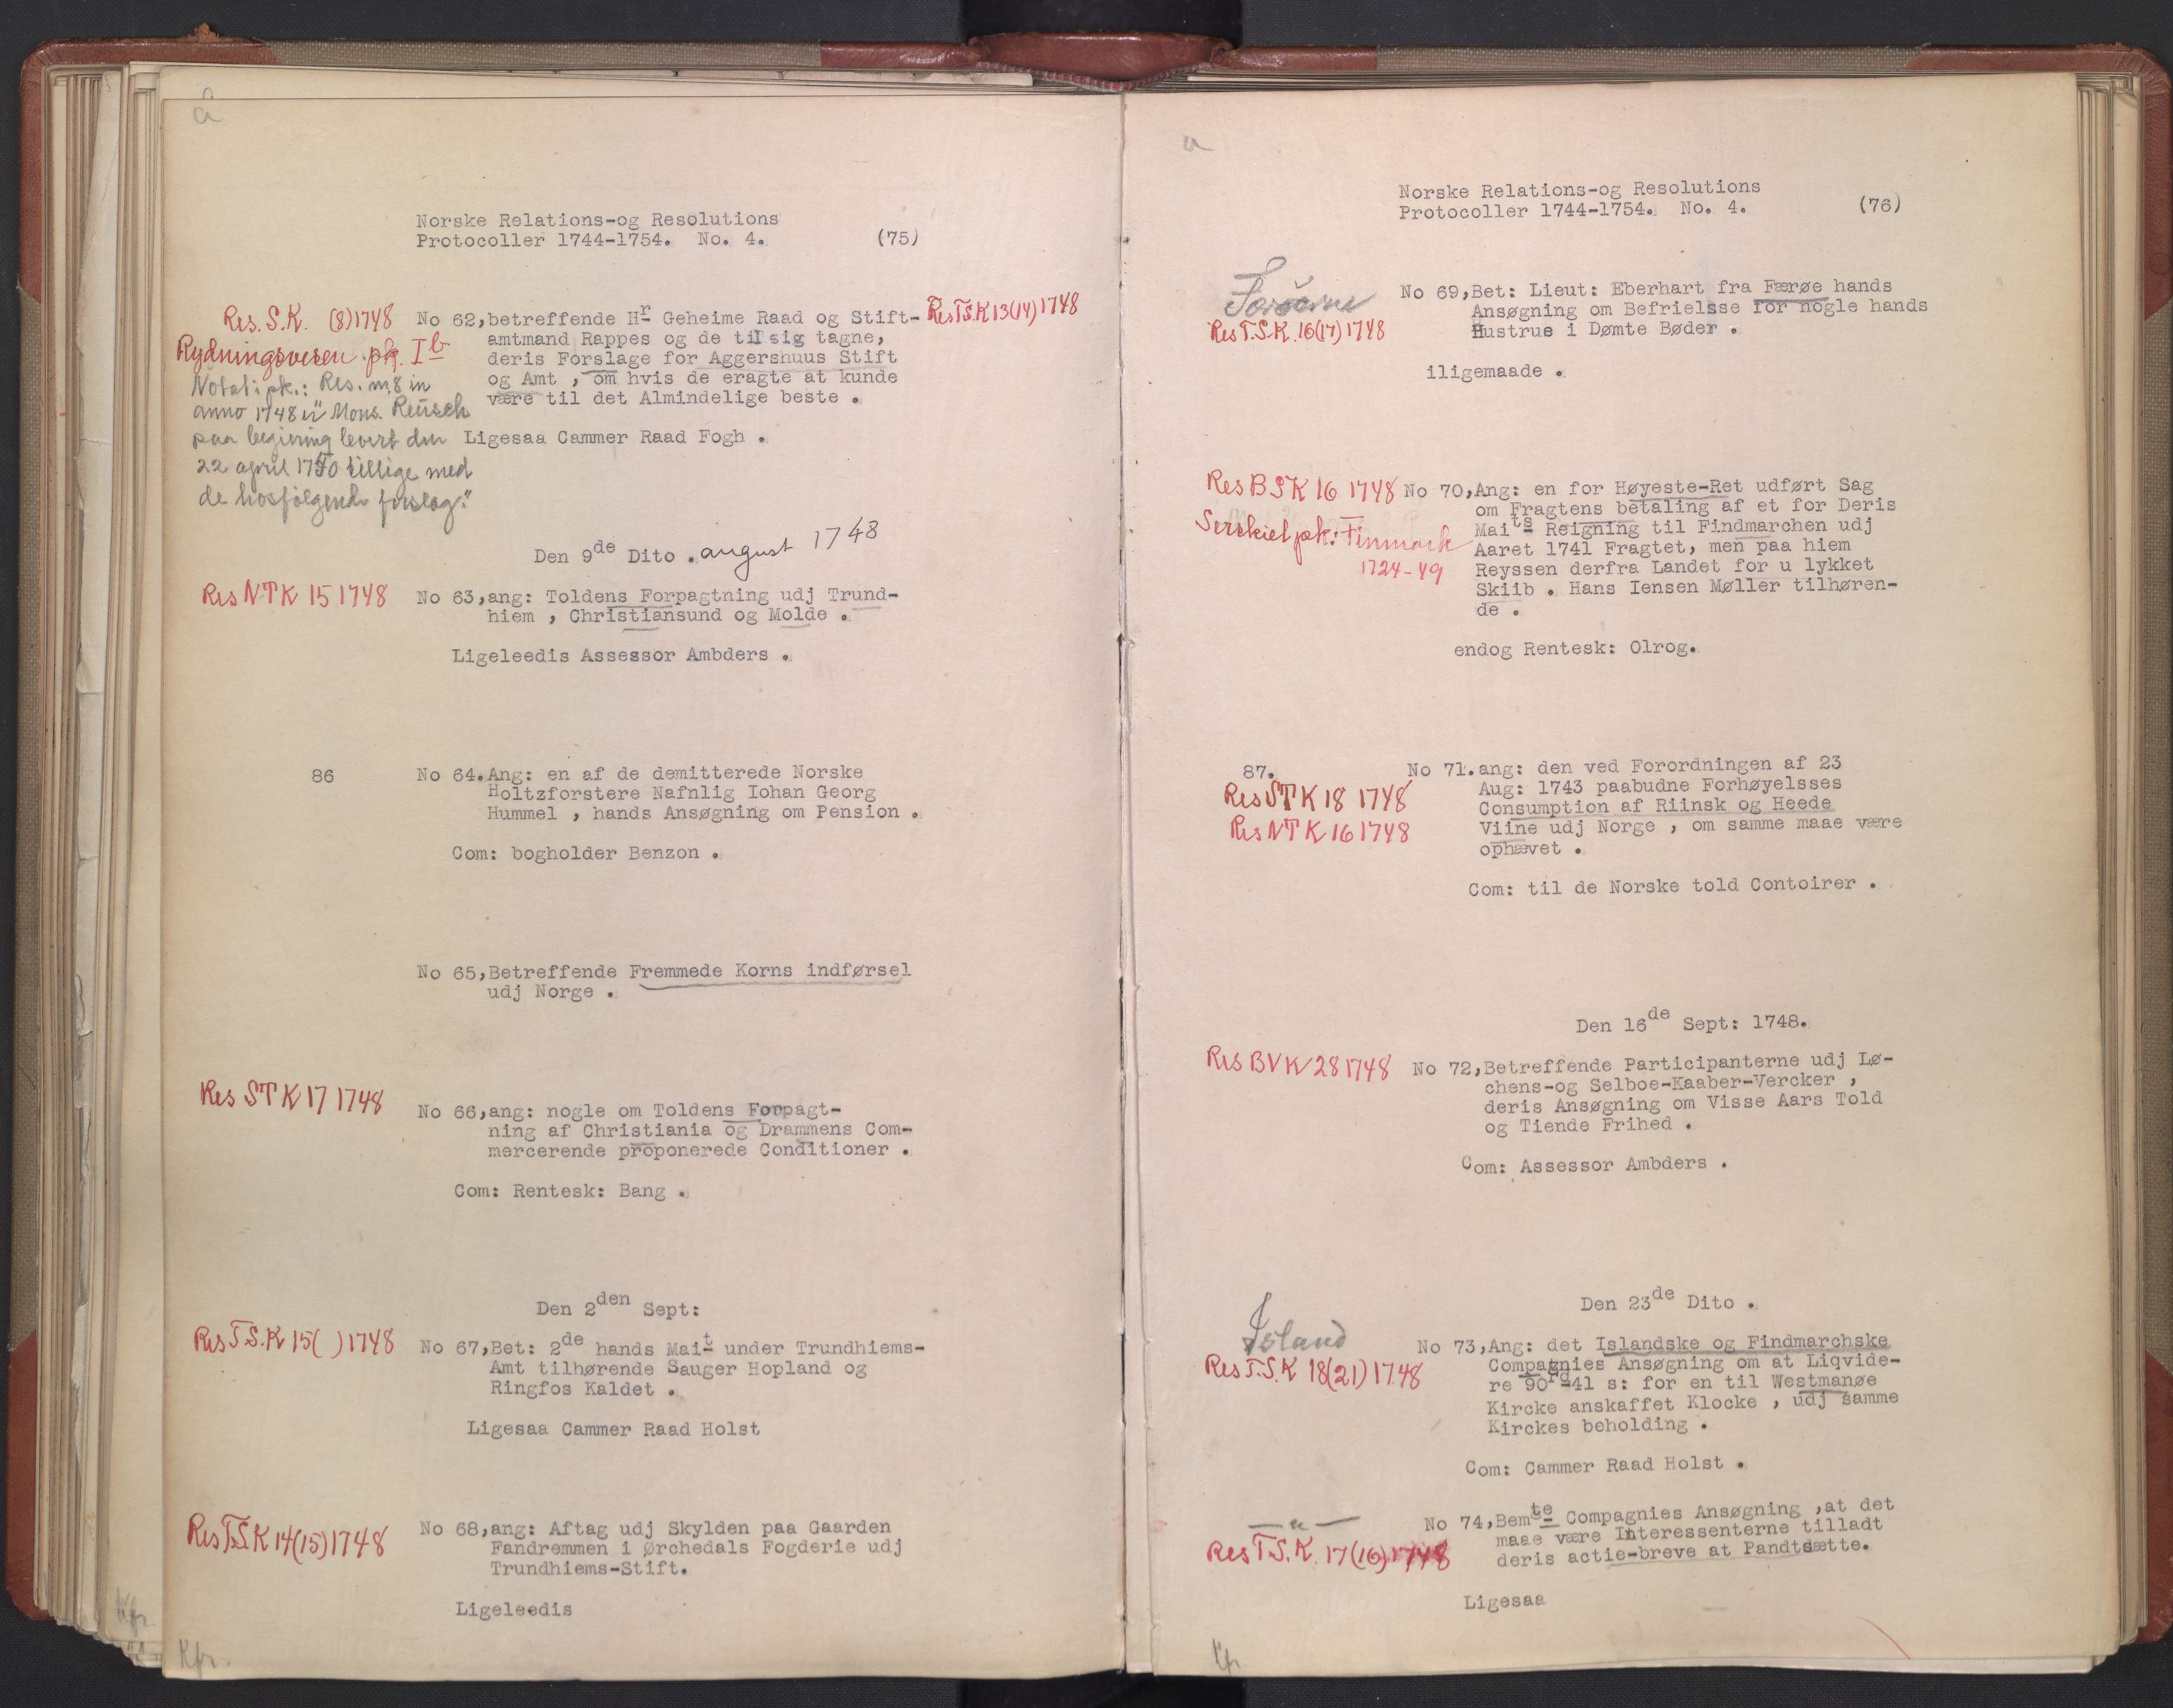 a
Norske Relations-og Resolutions
Protocoller 1744-1754. No. 4. (75)
Res. S.K. (8) 1748
Rydningsvesen pk. I b
Notat i pk.: Res. nr. 8 in
anno 1748 er Mons. Reusch
paa begiering levert den
22 april 1750 tillige med
de hosfølgende forslag."
No 62, betreffende Hr Geheime Raad og Stift-
amtmand Rappes og de til sig tagne,
deris Forslage for Aggershuus Stift
og Amt , om hvis de eragte at kunde
være til det Almindelige beste .
Res T.S.K 13(14) 1748
Ligesaa Cammer Raad Fogh .
Den 9de Dito . august 1748
Res NTK 15 1748
No 63, ang: Toldens Forpagtning udj Trund-
hiem , Christiansund og Molde .
Ligeleedis Assessor Ambders .
86
No 64. Ang: en af de demitterede Norske
Holtzforstere Nafnlig Iohan Georg
Hummel , hands Ansøgning om Pension .
Com: bogholder Benzon .
No 65, Betreffende Fremmede Korns indførsel
udj Norge .
Res STK 17 1748
No 66, ang: nogle om Toldens Forpagt-
ning af Christiania og Drammens Com-
mercerende proponerede Conditioner .
Com: Rentesk: Bang .
Den 2den Sept:
Res T.S.K 15( ) 1748
No 67, Bet: 2de hands Mait under Trundhiems-
Amt tilhørende Sauger Hopland og
Ringfos Kaldet .
Ligesaa Cammer Raad Holst
Res T.S.K 14(15) 1748
No 68, ang: Aftag udj Skylden paa Gaarden
Fandremmen i Ørchedals Fogderie udj
Trundhiems-Stift.
Ligeleedis
Kfr.
a
Norske Relations-og Resolutions
Protocoller 1744-1754. No. 4. (76)
Færøerne
Res T.S.K. 16(17) 1748
No 69, Bet: Lieut: Eberhart fra Færøe hands
Ansøgning om Befrielsse for nogle hands
Hustrue i Dømte Bøder .
iligemaade .
Res BSK 16 1748
Særskiel pk: Finmark
1724-49
No 70, Ang: en for Høyeste-Ret udført Sag
om Fragtens betaling af et for Deris
Maits Reigning til Findmarchen udj
Aaret 1741 Fragtet, men paa hiem
Reyssen derfra Landet for u lykket
Skiib . Hans Iensen Møller tilhøren-
de .
endog Rentesk: Olrog.
87.
Res STK 18 1748
Res NTK 16 1748
No 71. ang: den ved Forordningen af 23
Aug: 1743 paabudne Forhøyelsses
Consumption af Riinsk og Heede
Viine udj Norge , om samme maae være
ophævet .
Com: til de Norske told Contoirer .
Den 16de Sept: 1748.
Res BVK 28 1748
No 72, Betreffende Participanterne udj Lø-
chens-og Selboe-Kaaber-Vercker ,
deris Ansøgning om Visse Aars Told
og Tiende Frihed .
Com: Assessor Ambders .
Den 23de Dito .
Island
Res T.S.K 18(21) 1748
No 73, Ang: det Islandske og Findmarchske
Compagnies Ansøgning om at Liqvide-
re 90 rd 41 s: for en til Westmanøe
Kircke anskaffet Klocke , udj samme
Kirckes beholding .
Com: Cammer Raad Holst .
— " —
Res T.S.K. 17(16) 1748
No 74, Bemte Compagnies Ansøgning ,at det
maae være Interessenterne tilladt
deris actie-breve at Pandtsætte.
Ligesaa
Kfr